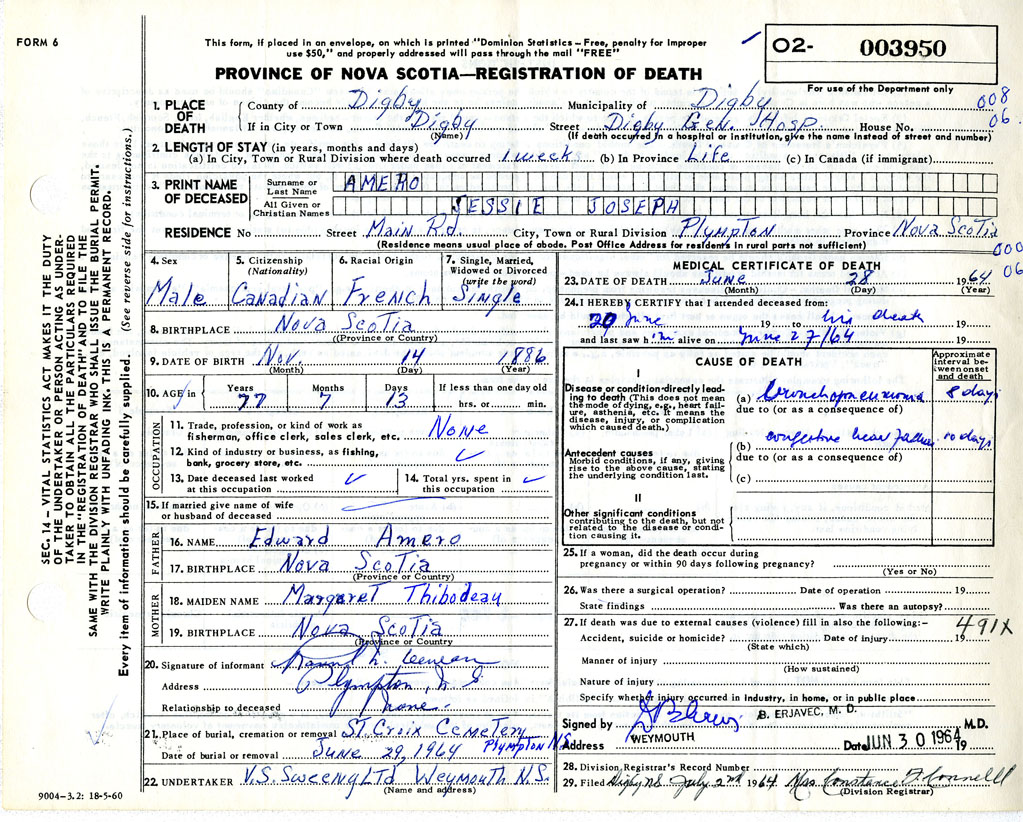 FORM 6
This form, if placed in an envelope, on which is printed "Dominion Statistics – Free, penalty for improper
use $50," and properly addressed will pass through the mail "FREE"
PROVINCE OF NOVA SCOTIA—REGISTRATION OF DEATH
02- 003950
For use of the Department only
008
06.
1. PLACE OF DEATH
County of Digby Municipality of Digby
If in City or Town Digby Street Digby Gen. Hosp. House No.
(Name) (If death occurred in a hospital or institution, give the name instead of street and number)
2. LENGTH OF STAY (in years, months and days)
(a) In City, Town or Rural Division where death occurred 1 weeks (b) In Province Life (c) In Canada (if immigrant)
3. PRINT NAME OF DECEASED
Surname or Last Name AMERO
All Given or Christian Names JESSIE JOSEPH
RESIDENCE No Street Main Rd. City, Town or Rural Division Plympton Province Nova Scotia
(Residence means usual place of abode. Post Office Address for residents in rural parts not sufficient)
000
06
4. Sex Male
5. Citizenship (Nationality) Canadian
6. Racial Origin French
7. Single, Married, Widowed or Divorced (write the word) Single
8. BIRTHPLACE Nova Scotia
(Province or Country)
9. DATE OF BIRTH Nov. 14 1886
(Month) (Day) (Year)
10. AGE in Years 77 Months 7 Days 13 If less than one day old hrs. or min.
OCCUPATION
11. Trade, profession, or kind of work as fisherman, office clerk, sales clerk, etc. None
12. Kind of industry or business, as fishing, bank, grocery store, etc.
13. Date deceased last worked at this occupation
14. Total yrs. spent in this occupation
15. If married give name of wife or husband of deceased
FATHER
16. NAME Edward Amero
17. BIRTHPLACE Nova Scotia
(Province or Country)
MOTHER
18. MAIDEN NAME Margaret Thibodeau
19. BIRTHPLACE Nova Scotia
(Province or Country
20. Signature of informant
Address Plympton, N S
Relationship to deceased none.
21. Place of burial, cremation or removal St. Croix Cemetery
Date of burial or removal June 29, 1964 Plympton N.S.
22. UNDERTAKER V.S. Sweeny Ltd Weymouth N.S.
(Name and address)
9004–3.2: 18-5-60
MEDICAL CERTIFICATE OF DEATH
23. DATE OF DEATH June 28 1964
(Month) (Day) (Year)
24. I HEREBY CERTIFY that I attended deceased from:
20 June 19 to his death 19
and last saw him alive on June 27/64 19
CAUSE OF DEATH
Approximate interval between onset and death
I
Disease or condition directly leading to death (This does not mean the mode of dying, e.g., heart failure, asthenia, etc. It means the disease, injury, or complication which caused death.)
(a) bronchopneumonia 8 days
due to (or as a consequence of)
(b) congestive heart failure 10 days
due to (or as a consequence of)
(c)
Antecedent causes
Morbid conditions, if any, giving rise to the above cause, stating the underlying condition last.
II
Other significant conditions
contributing to the death, but not related to the disease or condition causing it.
25. If a woman, did the death occur during
pregnancy or within 90 days following pregnancy?
(Yes or No)
26. Was there a surgical operation? Date of operation 19
State findings Was there an autopsy?
27. If death was due to external causes (violence) fill in also the following:–
491X
Accident, suicide or homicide? Date of injury 19
(State which)
Manner of injury
(How sustained)
Nature of injury
Specify whether injury occurred in industry, in home, or in public place
Signed by B. ERJAVEC, M. D. M.D.
Address WEYMOUTH Date JUN 30 1964 19
28. Division Registrar's Record Number
29. Filed Digby NS July 2nd 1964 Miss Constance F. Connell
(Division Registrar)
SEC. 14 – VITAL STATISTICS ACT MAKES IT THE DUTY
OF THE UNDERTAKER OR PERSON ACTING AS UNDER-
TAKER "TO OBTAIN ALL THE PARTICULARS REQUIRED
IN THE "REGISTRATION OF DEATH" AND TO FILE THE
SAME WITH THE DIVISION REGISTRAR WHO SHALL ISSUE THE BURIAL PERMIT.
WRITE PLAINLY WITH UNFADING INK. THIS IS A PERMANENT RECORD.
Every item of information should be carefully supplied. (See reverse side for instructions.)